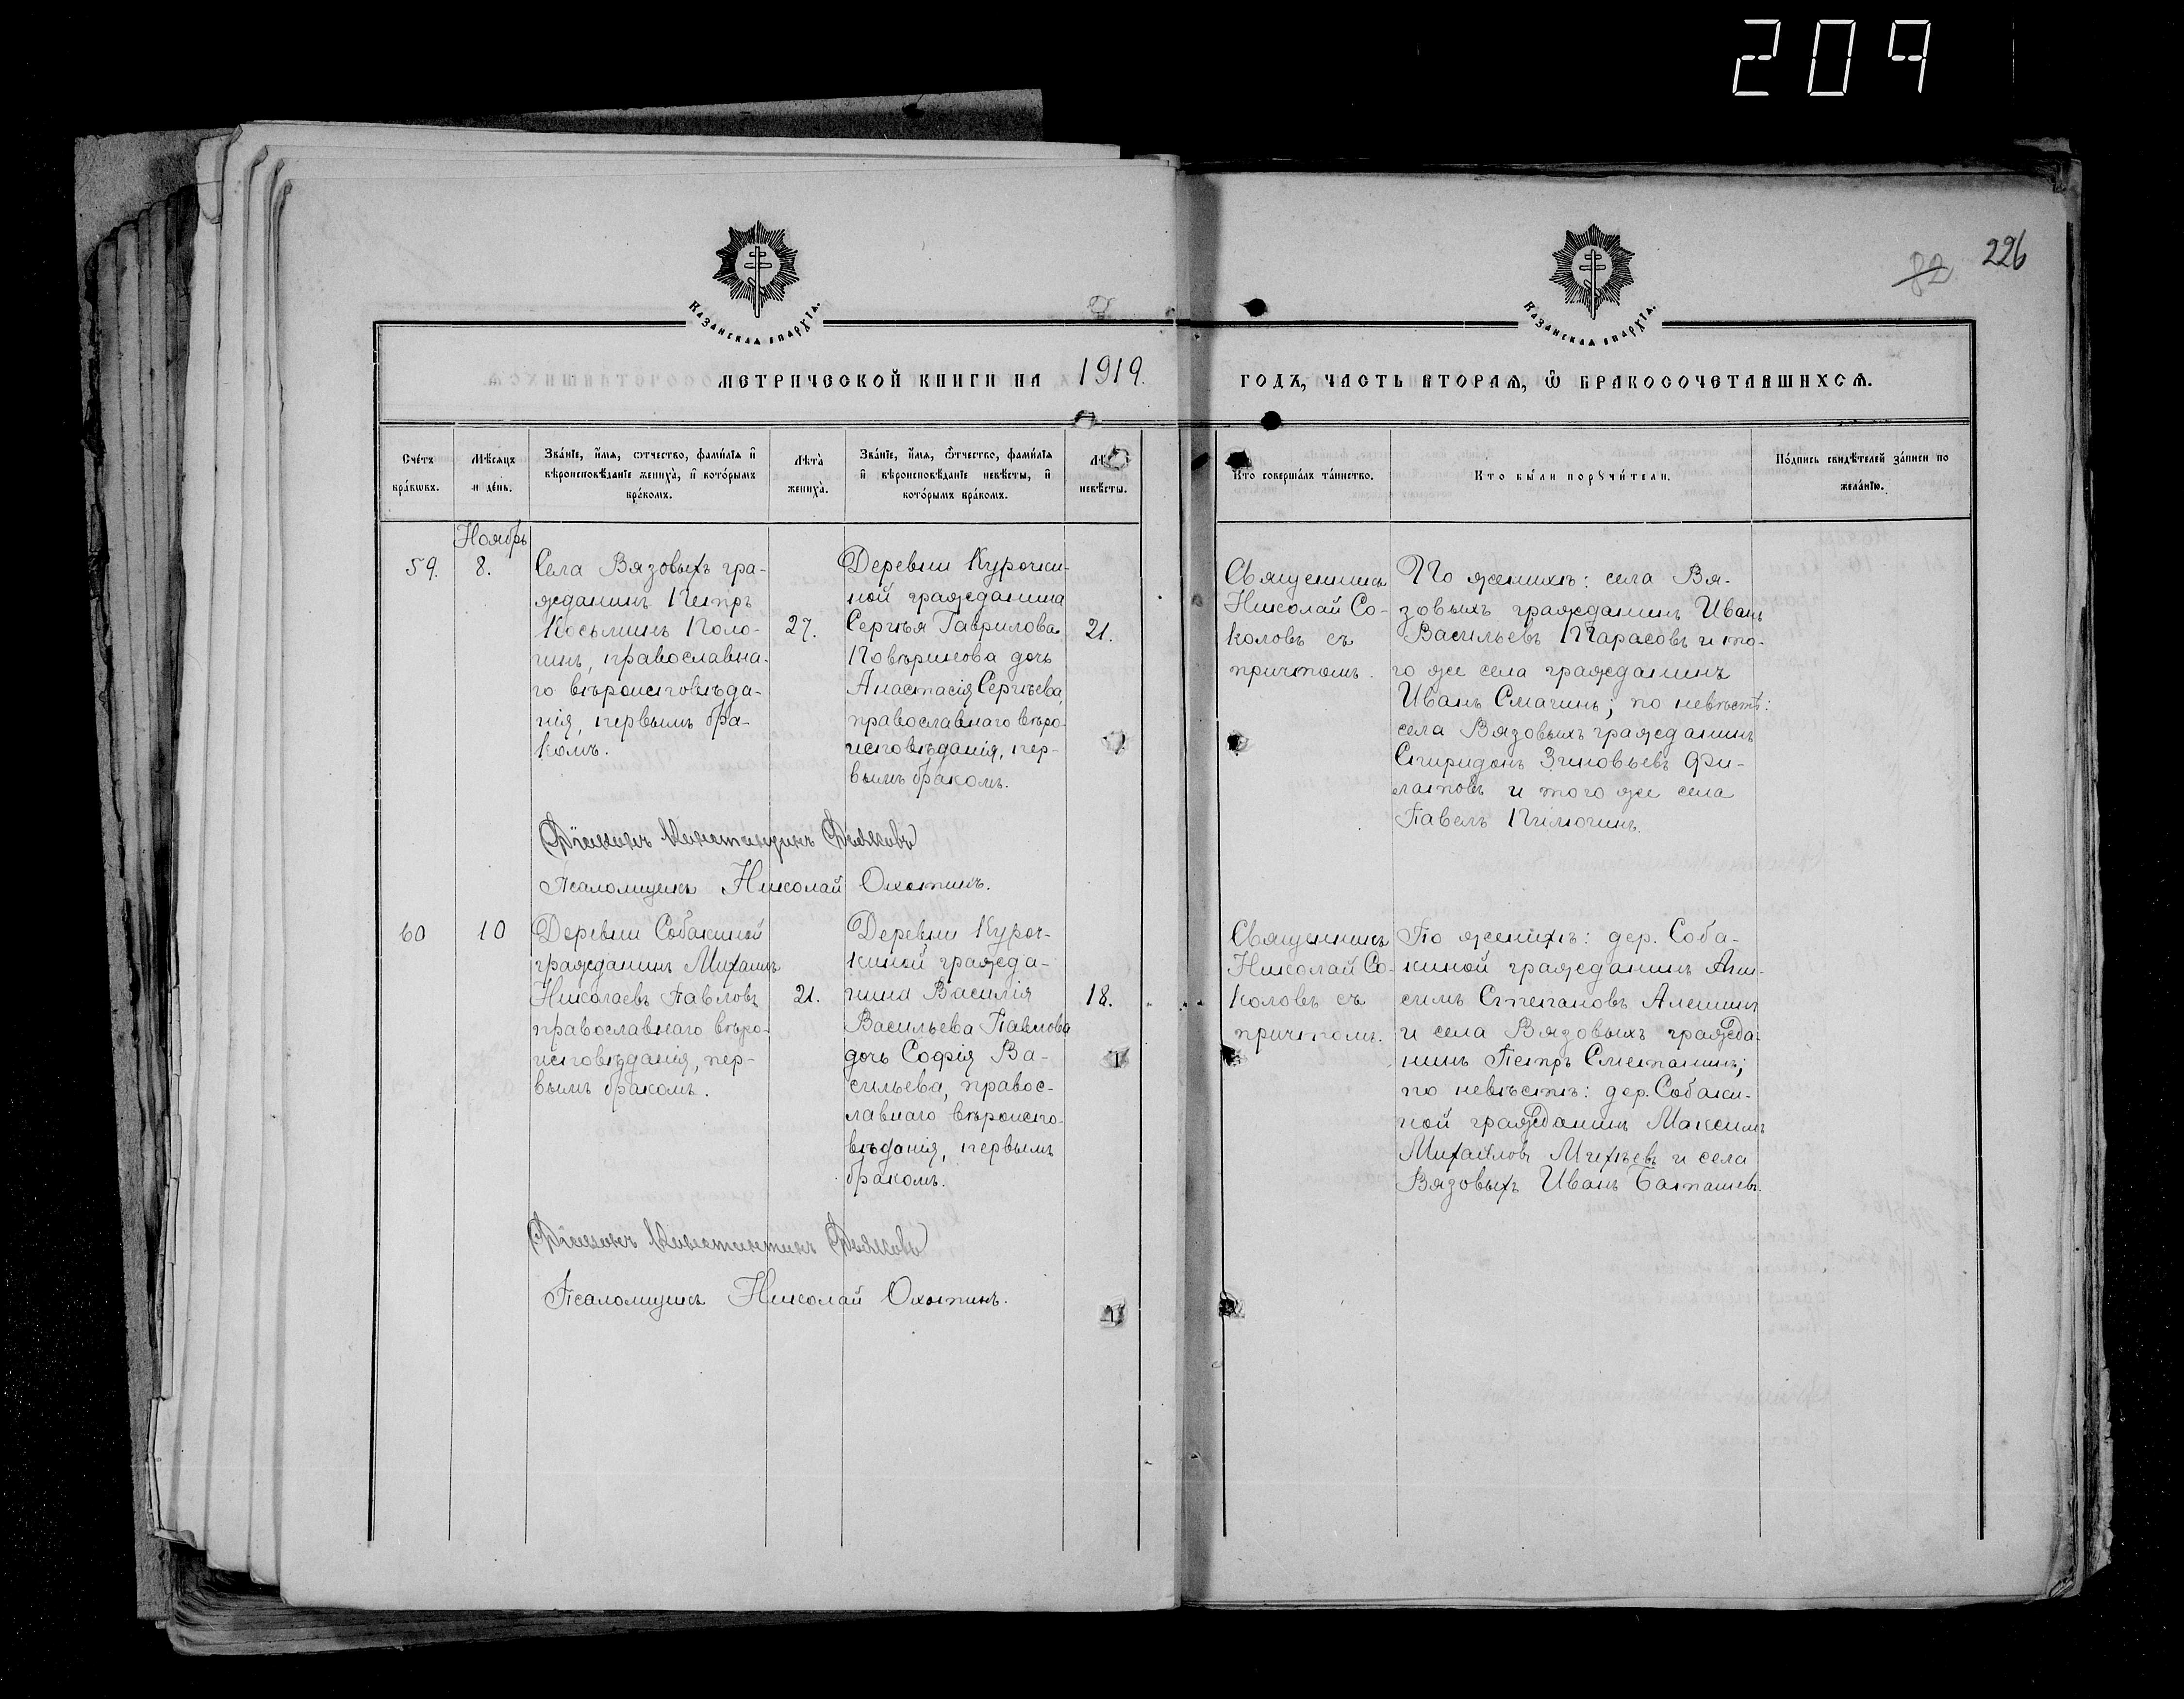 209
82 226
Казанская епархїа.
Казанская епархїа.
МЕТРИЧЕСКОЙ КНИГИ НА 1919. ГОДЪ, ЧАСТЬ ВТОРАѦ, Ѿ БРАКОСОЧЕТАВШИХСѦ.
Сче́тъ бра́кѡвъ.
Мѣ́сѧцъ и де́нь.
Зва́нїе, и҆́мѧ, ѻтчество, фами́лїѧ и҆ вѣроисповѣ́данїе жениха̀, и҆ кото́рымъ бра́комъ.
Лѣта̀ жениха̀.
Зва́нїе, и҆́мѧ, ѻ҆́тчество, фами́лїѧ и҆ вѣроисповѣ́данїе невѣ́сты, и҆ кото́рымъ бра́комъ.
невѣ́сты.
Кто соверша́лъ та́инство.
Кто бы́ли порꙋчи́тели.
По́дпись свидѣ́телей за́писи по жела́нїю.
Ноябрь
59.
8.
Села Вязовыхъ гра-
жданинъ Петръ
Косьминъ Коло-
гинъ, православна-
го вѣроисповѣда-
нія, первымъ бра-
комъ.
27.
Деревни Курочки-
ной гражданина
Сергѣя Гаврилова
Новѣрикова дочь
Анастасія Сергѣева,
православнаго вѣро-
исповѣданія, пер-
вымъ бракомъ.
21.
Священникъ
Николай Со-
коловъ съ
причтомъ.
По женихѣ: села Вя-
зовыхъ гражданинъ Иванъ
Васильевъ Тарасовъ и то-
го же села гражданинъ
Иванъ Смагинъ; по невѣстѣ:
села Вязовыхъ гражданинъ
Спиридонъ Зиновьевъ Фи-
латовъ и того же села
Павелъ
Діаконъ Константинъ Дьяковъ
Псаломщикъ Николай Охотинъ.
60
10
Деревни Собакиной
гражданинъ Михаилъ
Николаевъ Павловъ
православнаго вѣро-
исповѣданія, пер-
вымъ бракомъ.
21.
Деревни Куроч-
киной гражда-
нина Василія
Васильева Павлова
дочь Софія Ва-
сильева, правос-
лавнаго вѣроиспо-
вѣданія, первымъ
бракомъ.
18.
Священникъ
Николай Со-
коловъ съ
причтомъ.
По женихѣ: дер. Соба-
киной гражданинъ Ани-
симъ Степановъ Алешинъ
и села Вязовыхъ гражда-
нинъ Петръ Сметанинъ;
по невѣстѣ: дер. Собаки-
ной гражданинъ Максимъ
Михайловъ Михѣевъ и села
Вязовыхъ Иванъ Баташевъ.
Діаконъ Константинъ Дьяковъ
Псаломщикъ Николай Охотинъ.